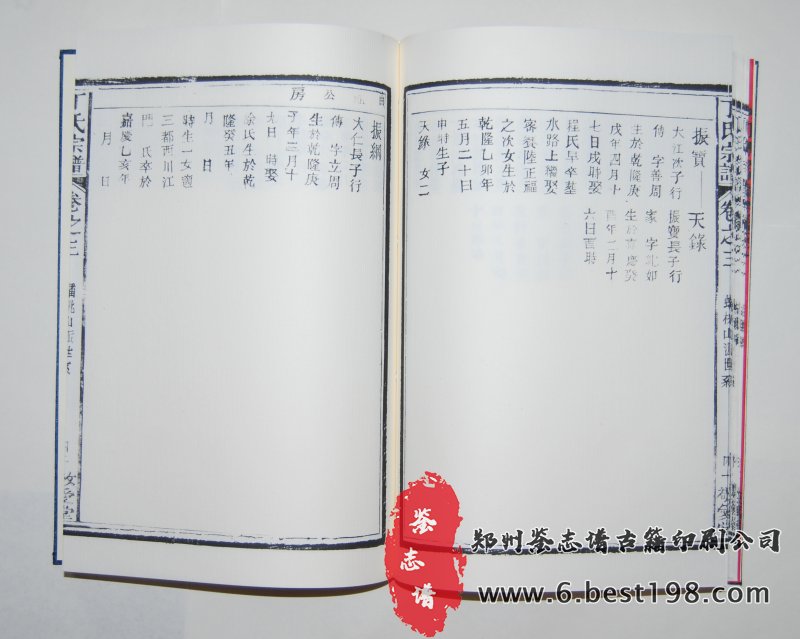 丁氏宗譜
卷之三
振寶
天錄
大江次子行
傳 字善周
生於乾隆庚
戌年四月十
七日戌時娶
程氏早卒墓
水路上續娶
陸正福
之次女生於
乾隆乙卯年
五月二十日
申時生子
天錄 女二
振寶長子行
家 字
生於嘉慶癸
酉年二月十
六日酉時
公房
振綱
大仁長子行
傳 字立周
生於乾隆庚
子年三月十
九日 時娶
徐氏生於乾
隆癸丑年
月 日
時生一女適
三都西川江
門 氏卒於
嘉慶乙亥年
月 日
丁氏宗譜
卷之三
鉴志谱
郑州鉴志谱古籍印刷公司
www.6.best198.com